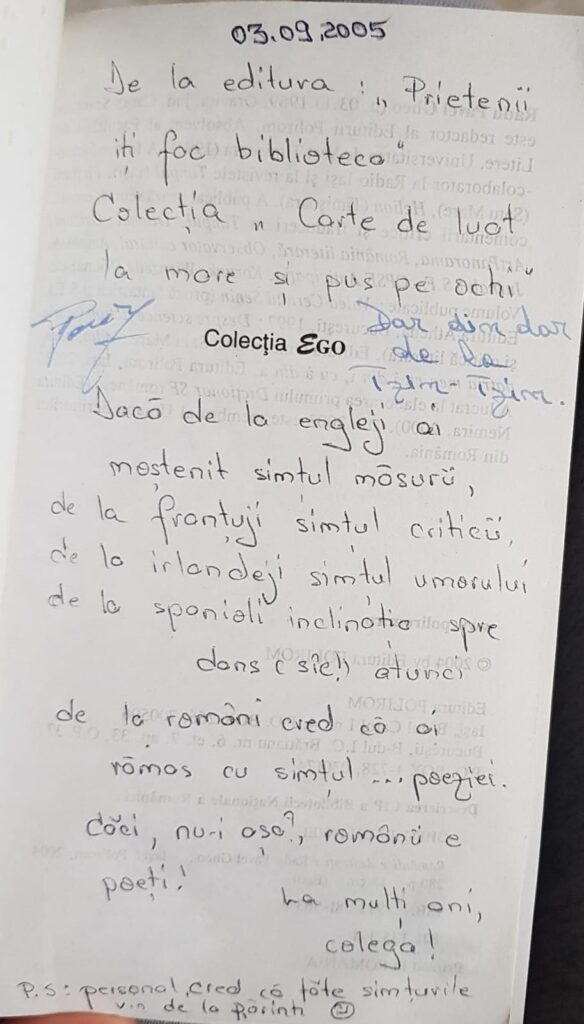 03.09.2005
De la editura : „ Prietenii
iți fac biblioteca"
Colecția „ Carte de luat
la mare și pus pe ochi"
Dar din dar
de la
Tzim-Tzim.
Colecţia EGO
Dacă de la engleji ai
moștenit simțul măsurii,
de la franțuji simțul criticii,
de la irlandeji simțul umorului
de la spanioli inclinația spre
dans (sic!) atunci
de la români cred că ai
rămas cu simțul ... poeziei.
Căci, nu-i așa?, românii e
poeți!
La mulți ani,
colega!
P.S: personal, cred că tóte simțurile
vin de la părinți